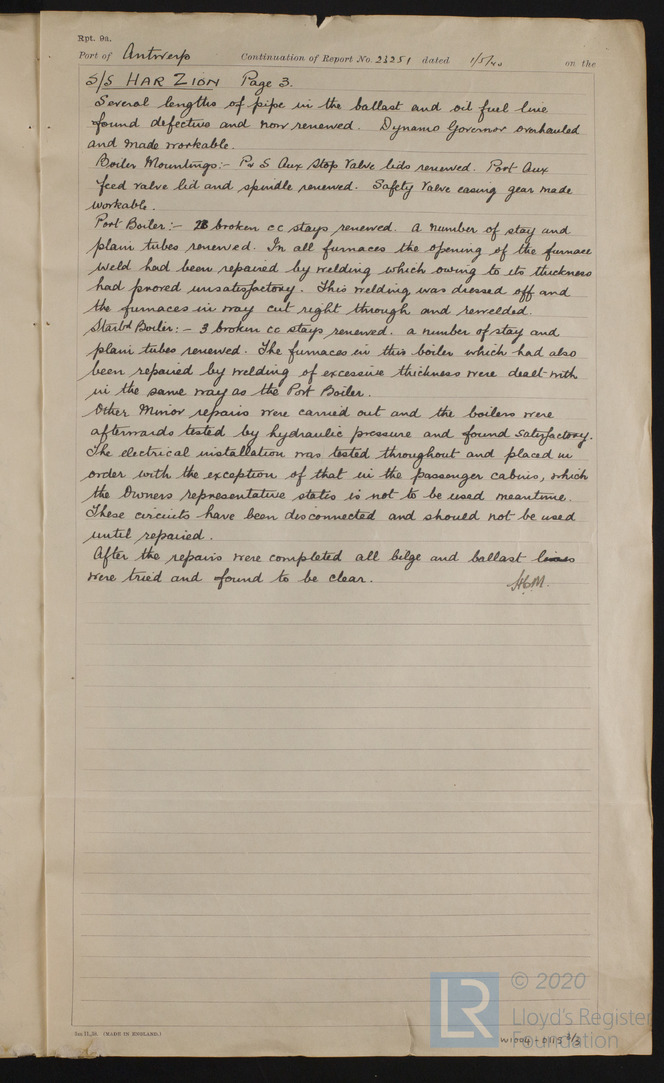 Rpt. 9a.
Port of Antwerp Continuation of Report No. 23251 dated 1/5/40 on the
S/S HAR ZION Page 3.
Several lengths of pipe in the ballast and oil fuel line
found defective and now renewed. Dynamo Governor overhauled
and made workable.
Boiler Mountings:- P & S Aux Stop Valve lids renewed. Port Aux
feed valve lid and spindle renewed. Safety Valve easing gear made
workable.
Port Boiler:- broken cc stays renewed. A number of stay and
plain tubes renewed. In all furnaces the opening of the furnace
weld had been repaired by welding which owing to its thickness
had proved unsatisfactory. This welding was dressed off and
the furnaces in way cut right through and rewelded.
Starbd Boiler:- 3 broken cc stays renewed. a number of stay and
plain tubes renewed. The furnaces in this boiler which had also
been repaired by welding of excessive thickness were dealt with
in the same way as the Port Boiler.
Other Minor repairs were carried out and the boilers were
afterwards tested by hydraulic pressure and found satisfactory.
The electrical installation was tested throughout and placed in
order with the exception of that in the passenger cabins, which
the Owners representative states is not to be used meantime.
These circuits have been disconnected and should not be used
until repaired.
After the repairs were completed all bilge and ballast lines
were tried and found to be clear.
(MADE IN ENGLAND.)
LR
© 2020
Lloyd's Register
Foundation
W1004-0115 3/3